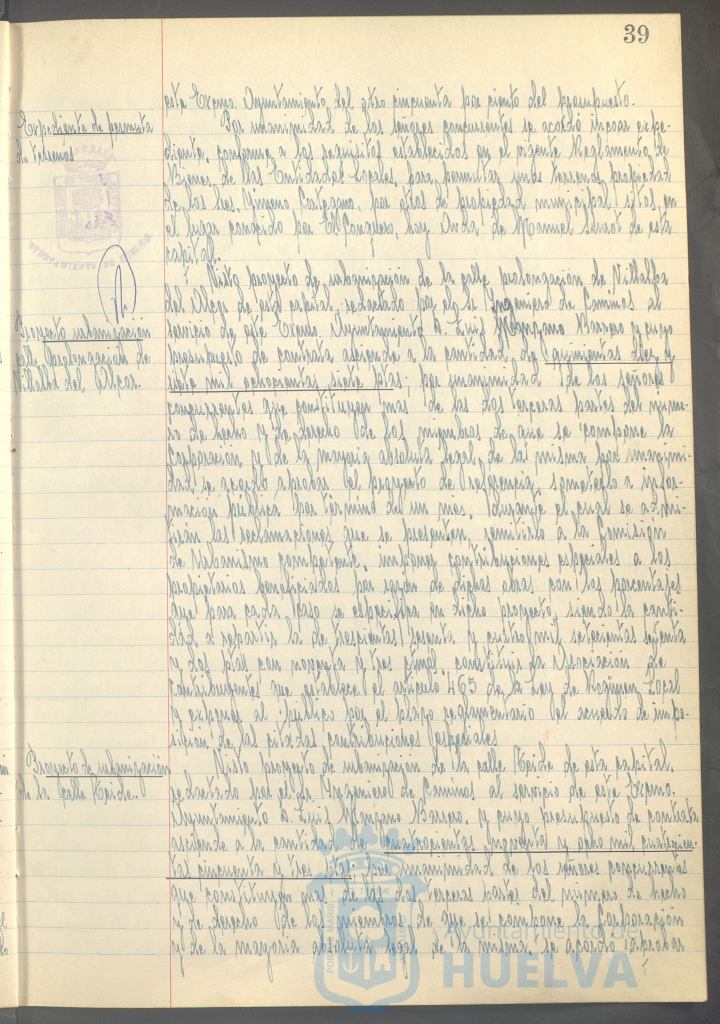 39
este Excmo. Ayuntamiento del otro cincuenta por ciento del presupuesto.
Expediente de permuta
de terrenos
Por unanimidad de los señores concurrentes se acordó incoar expe-
diente, conforme a los requisitos establecidos en el vigente Reglamento de
Bienes de las Entidades Locales, para permutar unos terrenos propiedad
de los Sres. Jimeno Cartegano, por otros de propiedad municipal sitos en
el lugar conocido por El Conquero, hoy Avda de Manuel Siurot de esta
capital.
Proyecto urbanización
calle Prolongación de
Villalba del Alcor.
Visto proyecto de urbanización de la calle prolongación de Villalba
del Alcor de esta capital, redactado por el Sr Ingeniero de Caminos al
servicio de este Excmo. Ayuntamiento D. Luis Manzano Barrero y cuyo
presupuesto de contrata asciende a la cantidad de quinientas diez y
siete mil ochocientas siete ptas; por unanimidad de los señores
concurrentes que constituyen mas de las dos terceras partes del núme-
ro de hecho y de derecho de los miembros de que se compone la
Corporación y de la mayoría absoluta legal de la misma por unanimi-
dad se acordó aprobar el proyecto de referencia, someterlo a infor-
mación pública por término de un mes, durante el cual se admi-
tirán las reclamaciones que se presenten, remitirlo a la Comisión
de Urbanismo competente, imponer contribuciones especiales a los
propietarios beneficiados por razón de dichas obras con los porcentajes
que para cada caso se especifica en dicho proyecto, siendo la canti-
dad a repartir la de trescientas sesenta y cuatro mil setecientas setenta
y dos ptas con noventa y tres ctmos, constituir la Asociación de
Contribuyentes que establece el artículo 465 de la Ley de Régimen Local
y exponer al público por el plazo reglamentario el acuerdo de impo-
sición de las citadas contribuciones especiales
Proyecto de urbanización
de la calle Heide.
Visto proyecto de urbanización de la calle Heide de esta capital,
redactado por el Sr Ingeniero de Caminos al servicio de este Excmo.
Ayuntamiento D. Luis Manzano Barrero, y cuyo presupuesto de contrata
asciende a la cantidad de cuatrocientas noventa y ocho mil cuatrocien-
tas cincuenta y tres ptas; por unanimidad de los señores concurrentes
que constituyen mas de las dos terceras partes del número de hecho
y de derecho de los miembros de que se compone la Corporación
y de la mayoría absoluta legal de la misma, se acordó aprobar
Ayuntamiento de
HUELVA